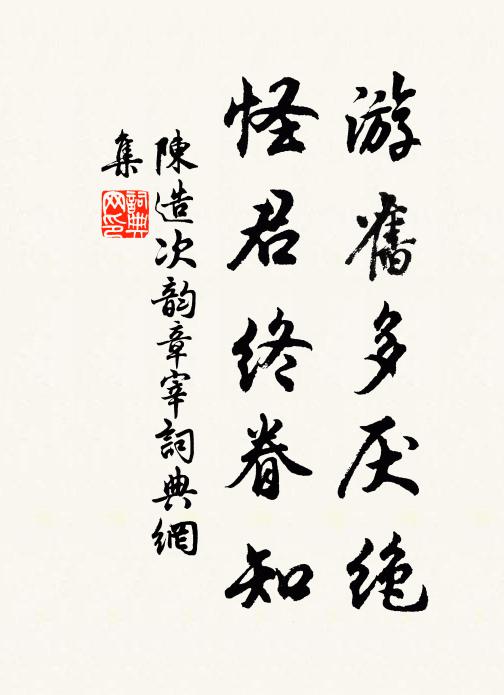 游舊多厌絶
怪君终眷知
陳造次韵章宰詞典網
集
詞典
网印